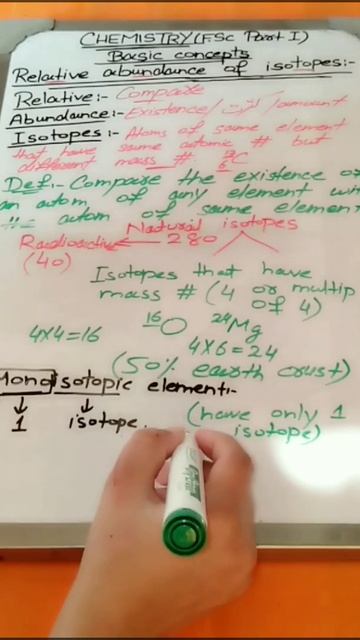 CHEMISTRY (FSc Part I)
Basic concepts
Relative abundance of isotopes:-
Relative:- Compare
Abundance:- Existence/ کثرت /amount
Isotopes:- Atoms of same element
that have same atomic # but
different mass # C
Def:- Compare the existence of
an atom of any element wi
atom of same elemen
Natural isotopes
Radioactive ← 280
(40)
Isotopes that have
mass # (4 or multip
of 4)
4x4=16 16O 24Mg
4x6=24
(50% earth crust)
Monoisotopic element:-
↓ ↓ (have only 1
1 isotope. isotope)